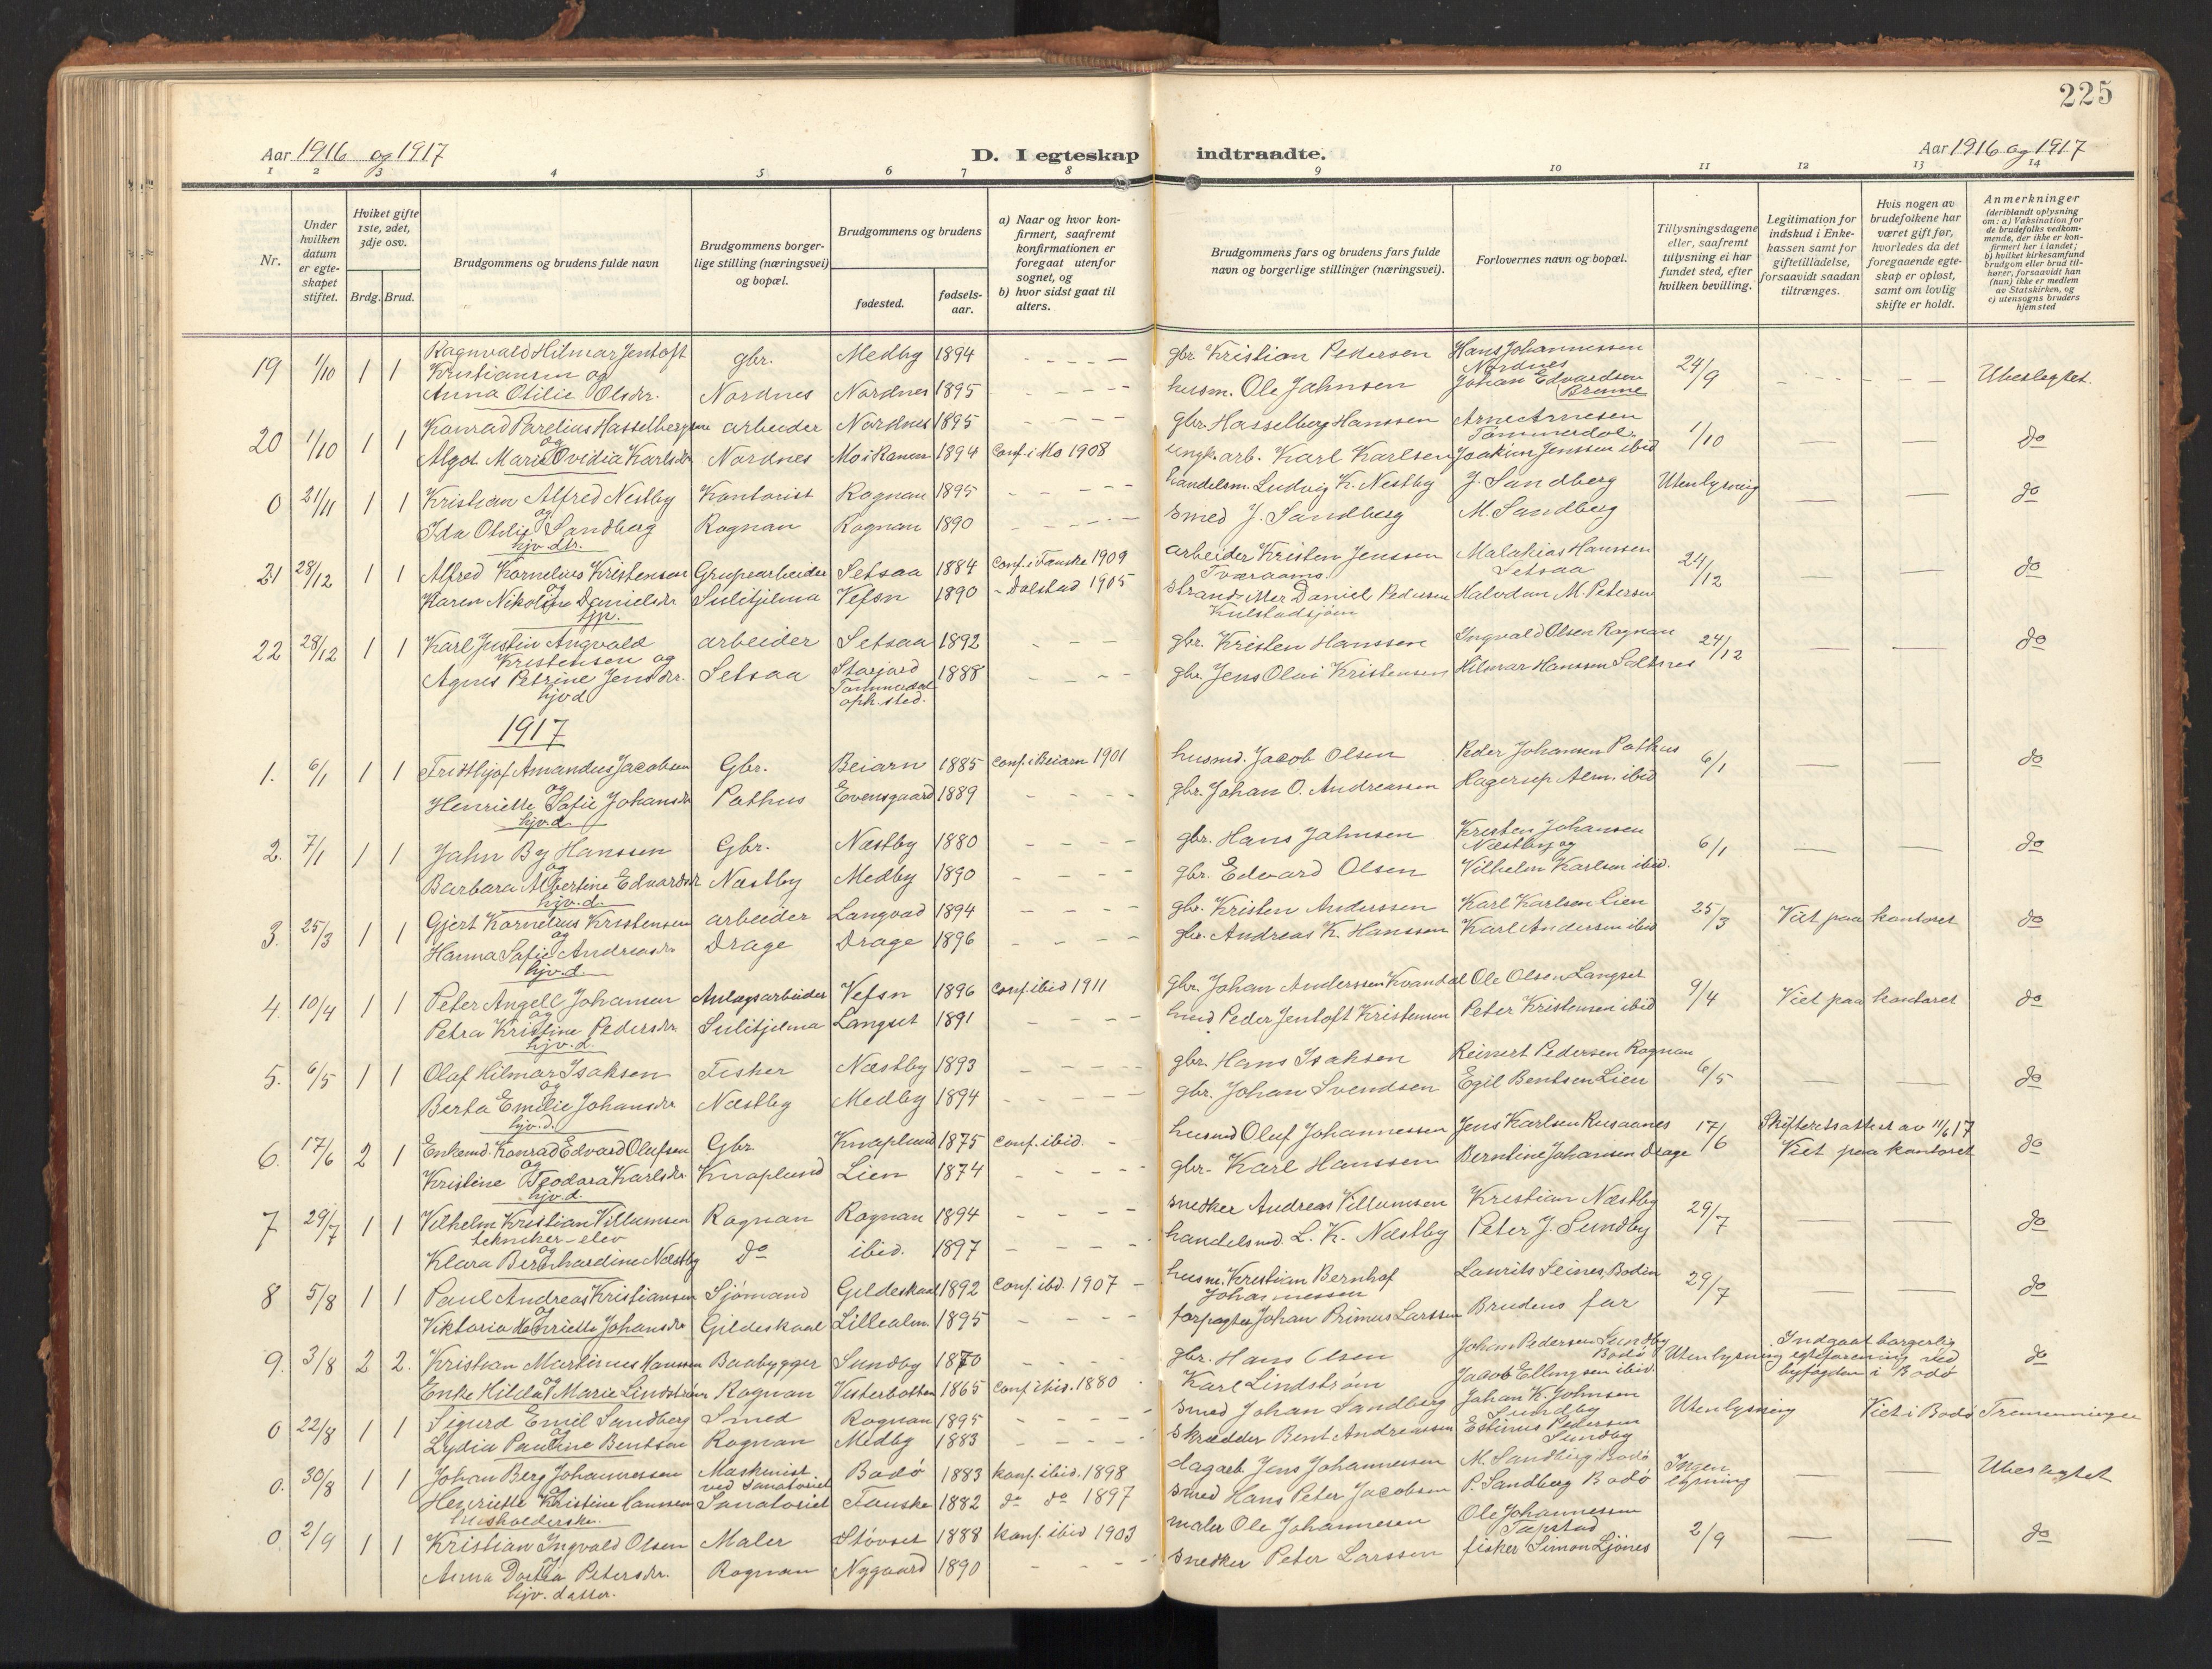 225
Aar 1916 og 1917
D. I egteskap indtraadte.
Aar 1916 og 1917
1 2 3 4 5 6 7 8 9 10 11 12 13 14
Nr.
Under hvilken datum er egteskapet stiftet.
Hviket gifte 1ste, 2det, 3dje osv.
Brdg. Brud.
Brudgommens og brudens fulde navn
Brudgommens borgerlige stilling (næringsvei) og bopæl.
Brudgommens og brudens
fødested.
fødselsaar.
a) Naar og hvor konfirmert, saafremt konfirmationen er foregaat utenfor sognet, og
b) hvor sidst gaat til alters.
Brudgommens fars og brudens fars fulde navn og borgerlige stillinger (næringsvei).
Forlovernes navn og bopæl.
Tillysningsdagene eller, saafremt tillysning ei har fundet sted, efter hvilken bevilling.
Legitimation for indskud i Enkekassen samt for giftetilladelse, forsaavidt saadan tiltrænges.
Hvis nogen av brudefolkene har været gift før, hvorledes da det foregaaende egteskap er opløst, samt om lovlig skifte er holdt.
Anmerkninger (deriblandt oplysning om: a) Vaksination for de brudefolks vedkommende, der ikke er konfirmert her i landet; b) hvilket kirkesamfund brudgom eller brud tilhører, forsaavidt han (hun) ikke er medlem av Statskirken, og c) utensogns bruders hjemsted
19 1/10 1 1 Ragnvald Hilmar Jentoft Kristiansen og gbr. Medby 1894 gbr Kristian Pedersen Hans Johannessen Nordnes 24/9 Ubeslegtet.
Anna Otilie Olsdr. Nordnes Nordnes 1895 husm. Ole Jahnsen Johan Edvardsen Brenne
20 1/10 1 1 Konrad Parelius Hasselbergsen arbeider Nordnes 1895 gbr. Hasselberg Hanssen Arne Arnesen Tømmerdal 1/10 — — do
og
Algot Marie Ovidia Karlsdr Nordnes Mo i Ranen 1894 Conf. i Mo 1908 arb. Karl Karlsen Joakim Jenssen ibid
0 21/11 1 1 Kristian Alfred Nestby Kontorist Rognan 1895 handelsm. Ludvig K. Nestby J. Sandberg Utenlysning — — do
og
Ida Otilie Sandberg Rognan Rognan 1890 smed J. Sandberg M. Sandberg
hjv. dtr.
21 28/12 1 1 Alfred Kornelius Kristensen Grupearbeider Setsaa 1884 Conf. i Fauske 1909 arbeider Kristen Jenssen Tværaamo Malakias Hanssen Setsaa 24/12 — do
og
Karen Nikoline Danielsdr Sulitjelma Vefsn 1890 - Dolstad 1905 Daniel Pedersen Kulstadsjøen Halvdan M. Petersen
tjp.
22 28/12 1 1 Karl Justin Angvald Kristensen og arbeider Setsaa 1892 gbr. Kristen Hanssen Ingvald Olsen Rognan 24/12 — — do
Agnes Petrine Jensdr. Setsaa Storjord Tømmerdal oph. sted. 1888 gbr. Jens Olai Kristensen Hilmar Hanssen Saltnes
hjv d
1917
1. 6/1 1 1 Fridthjof Amandus Jacobsen Gbr. Beiarn 1885 Conf. i Beiarn 1901 husmd. Jacob Olsen Peder Johansen Pothus 6/1 — — do
og
Henriette Sofie Johansdr Pothus Evensgaard 1889 gbr. Johan O. Andreassen Hagerup Alm. ibid
hjv. d.
2. 7/1 1 1 Jahn By Hanssen Gbr. Næstby 1880 gbr. Hans Jahnsen Kresten Johansen Næstby og 6/1 — — do
og
Barbara Albertine Edvardsdr Næstby Medby 1890 gbr. Edvard Olsen Vilhelm Karlsen ibid.
hjv. d.
3. 25/3 1 1 Gjert Kornelius Kristensen arbeider Langvad 1894 gbr. Kristen Anderssen Karl Karlsen Lien 25/3 Viet paa kontoret do
og
Hanna Sofie Andreasdr Drage Drage 1896 gbr. Andreas K. Hanssen Karl Andersen ibid
hjv. d.
4 10/4 1 1 Peter Angell Johansen Anlægsarbeider Vefsn 1896 Conf. ibid 1911 gbr. Johan Anderssen Kvandal Ole Olsen Langset 9/4 Viet paa kontoret do
og
Petra Kristine Pedersdr. Sulitjelma Langset 1891 husmd Peder Jentoft Kristensen Peter Kristensen ibid
hjv. d.
5. 6/5 1 1 Olaf Hilmar Isaksen Fisker Næstby 1893 gbr. Hans Isaksen Reinert Pedersen Rognan 6/5 — — do
og
Berta Emilie Johansdr Næstby Medby 1894 gbr. Johan Svendsen Egil Bentsen Lien
hjv. d.
6. 17/6 2 1 Enkemd. Konrad Edvard Olufsen Gbr. Knaplund 1875 Conf. ibid. husmd Oluf Johannessen Jens Karlsen Rusaanes 17/6 Skifteretsattest av 11/6 17 do
og
Kristine Teodora Karlsdr. Knaplund Lien 1874 gbr. Karl Hanssen Berntine Johansen Drage Viet paa kontoret
hjv. d.
7 29/7 1 1 Vilhelm Kristian Villumsen Rognan Rognan 1894 snedker Andreas Villumsen Kristian Næstby 29/7 — — do
tekniker-elev
og
Klara Bernhardine Næstby do ibid. 1897 handelsmd. L. K. Næstby Peter J. Sundby
8 5/8 1 1 Paul Andreas Kristiansen Sjømand Gildeskaal 1892 Conf. ibd. 1907 husm. Kristian Bernhof Johannessen Laurits Seines, Bodin 29/7 — — do
og
Viktoria Henriette Johansdr Gildeskaal Lillealm. 1895 forpagter Johan Primus Larssen Brudens far
9. 3/8 2 2. Kristian Martinus Hanssen Baabygger Sundby 1870 gbr. Hans Olsen Johan Pedersen Sundby Bodø Utenlysning Indgaat borgerlig egteforening ved byfogden i Bodø do
og
Enke Hilda Marie Lindstrøm Rognan Vesterbotten 1865 Conf. ibid. 1880 Karl Lindstrøm Jacob Ellingsen ibid.
0 22/8 1 1 Sigurd Emil Sandberg Smed Rognan 1895 smed Johan Sandberg Johan K. Johnsen Sundby Utenlysning Viet i Bodø Tremenninger
og
Lydia Pauline Bentsen Rognan Medby 1883 Skrædder Bent Andreassen Estinus Pedersen Sundby
0. 30/8 1 1 Johan Berg Johannessen Maskinist ved Sanatoriet Bodø 1883 konf. ibid. 1898 dagarb. Jens Johannessen M. Sandberg Bodø Ingen lysning — — Ubeslegtet
Henriette Kristine Hanssen Sanatoriet Fauske 1882 do do 1897 smed Hans Peter Jacobsen P. Sandberg Bodø
husholderske.
0. 2/9 1 1 Kristian Ingvald Olsen Maler Støvset 1888 konf. ibid 1903 maler Ole Johannesen Ole Johannessen 2/9 — — do
Anna Dortea Petersdr. Rognan Nygaard 1890 snedker Peter Larssen fisker Simon Ljønes
hjv. datter.